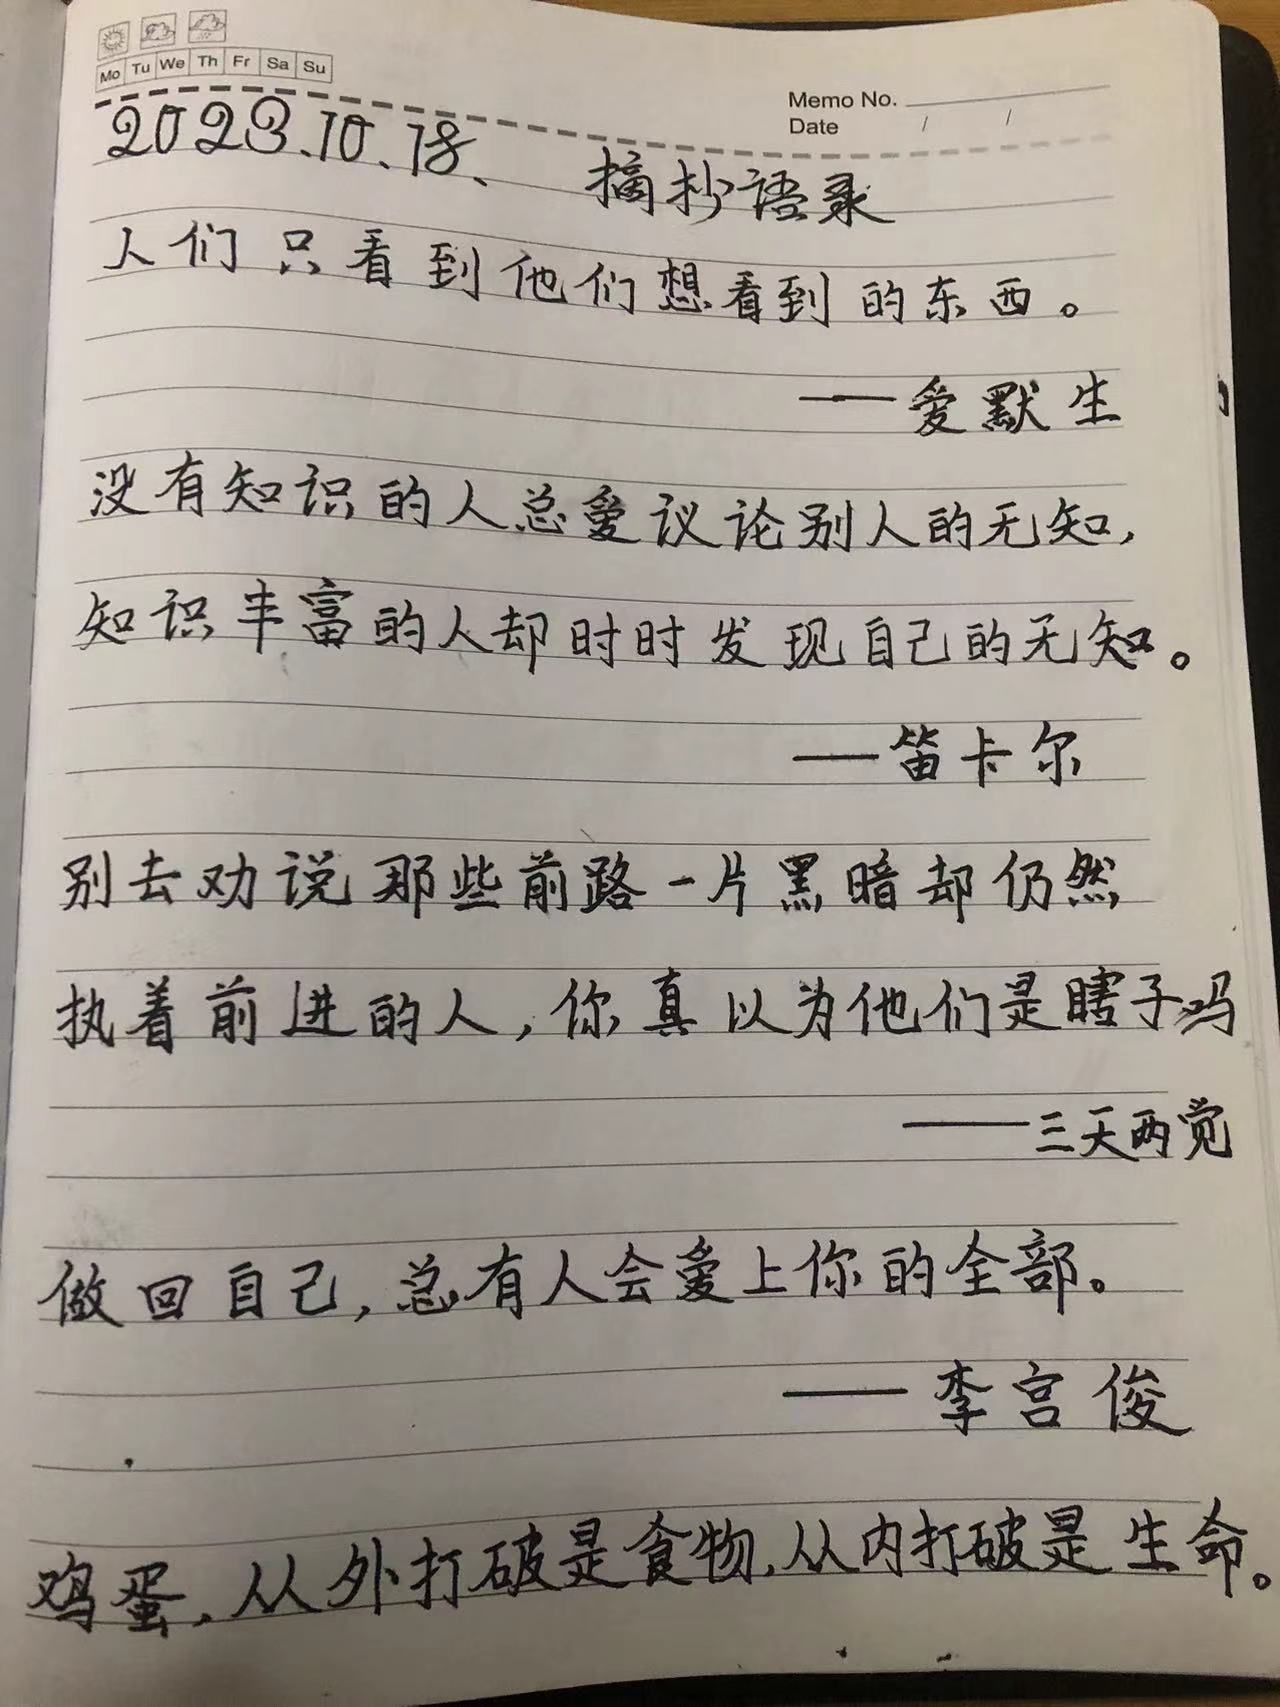 Mo Tu We Th Fr Sa Su
Memo No.
Date / /
2023.10.18、 摘抄语录
人们只看到他们想看到的东西。
——爱默生
没有知识的人总爱议论别人的无知，
知识丰富的人却时时发现自己的无知。
——笛卡尔
别去劝说那些前路一片黑暗却仍然
执着前进的人，你真以为他们是瞎子吗
——三天两觉
做回自己，总有人会爱上你的全部。
——李宫俊
鸡蛋，从外打破是食物，从内打破是生命。